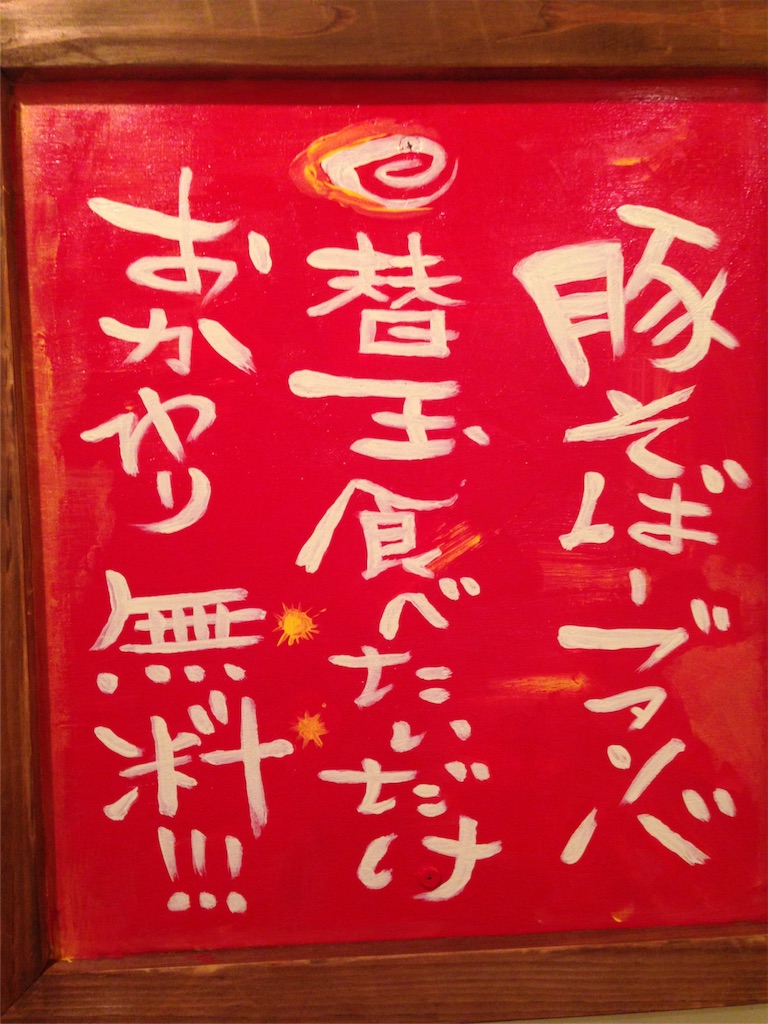 豚そば-ブタソバ
替玉食べたいだけ
おかわり無料!!!